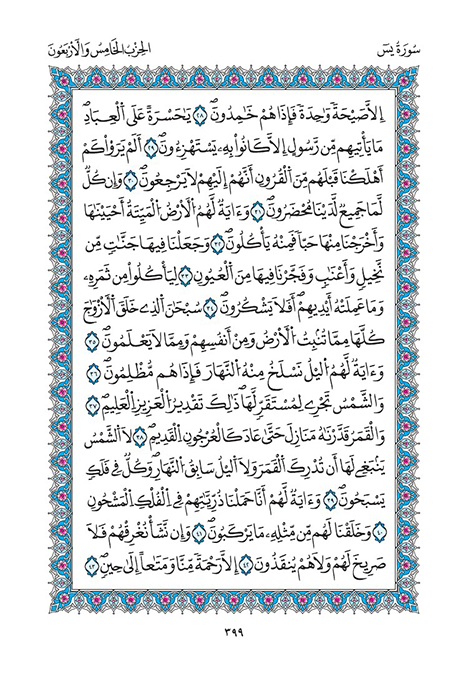 سُورَةُ يسٓ
الحِزْبُ الخَامِسُ وَالأَرْبَعُونَ
إِلَّا صَيْحَةً وَاحِدَةً فَإِذَا هُمْ خَٰمِدُونَۖ ٢٨ يَٰحَسْرَةً عَلَى اَ۬لْعِبَادِۖ
مَا يَأْتِيهِم مِّن رَّسُولٍ اِلَّا كَانُواْ بِهِۦ يَسْتَهْزِءُونَۖ ٢٩ أَلَمْ يَرَوْاْ كَمَ
اَهْلَكْنَا قَبْلَهُم مِّنَ اَ۬لْقُرُونِ أَنَّهُمُۥٓ إِلَيْهِمْ لَا يَرْجِعُونَۖ ٣٠ وَإِن كُلّٞ
لَّمَا جَمِيعٞ لَّدَيْنَا مُحْضَرُونَۖ ٣١ وَءَايَةٞ لَّهُمُ اُ۬لْأَرْضُ اُ۬لْمَيِّتَةُ أَحْيَيْنَٰهَا
وَأَخْرَجْنَا مِنْهَا حَبّٗا فَمِنْهُ يَأْكُلُونَۖ ٣٢ وَجَعَلْنَا فِيهَا جَنَّٰتٖ مِّن
نَّخِيلٖ وَأَعْنَٰبٖ وَفَجَّرْنَا فِيهَا مِنَ اَ۬لْعُيُونِ ٣٣ لِيَأْكُلُواْ مِن ثَمَرِهِۦ
وَمَا عَمِلَتْهُ أَيْدِيهِمُۥٓ أَفَلَا يَشْكُرُونَۖ ٣٤ سُبْحَٰنَ اَ۬لذِے خَلَقَ اَ۬لْأَزْوَٰجَ
كُلَّهَا مِمَّا تُنۢبِتُ اُ۬لْأَرْضُ وَمِنَ اَنفُسِهِمْ وَمِمَّا لَا يَعْلَمُونَۖ ٣٥
وَءَايَةٞ لَّهُمُ اُ۬ليْلُ نَسْلَخُ مِنْهُ اُ۬لنَّهَارَ فَإِذَا هُم مُّظْلِمُونَۖ ٣٦
وَالشَّمْسُ تَجْرِے لِمُسْتَقَرّٖ لَّهَاۖ ذَٰلِكَ تَقْدِيرُ اُ۬لْعَزِيزِ اِ۬لْعَلِيمِۖ ٣٧
وَالْقَمَرُ قَدَّرْنَٰهُ مَنَازِلَ حَتَّىٰ عَادَ كَالْعُرْجُونِ اِ۬لْقَدِيمِۖ ٣٨ لَا اَ۬لشَّمْسُ
يَنۢبَغِے لَهَآ أَن تُدْرِكَ اَ۬لْقَمَرَ وَلَا اَ۬ليْلُ سَابِقُ اُ۬لنَّهَارِۖ وَكُلّٞ فِے فَلَكٖ
يَسْبَحُونَۖ ٣٩ وَءَايَةٞ لَّهُمُۥٓ أَنَّا حَمَلْنَا ذُرِّيَّٰتِهِمْ فِے اِ۬لْفُلْكِ اِ۬لْمَشْحُونِ
٤٠ وَخَلَقْنَا لَهُم مِّن مِّثْلِهِۦ مَا يَرْكَبُونَۖ ٤١ وَإِن نَّشَأْ نُغْرِقْهُمْ فَلَا
صَرِيخَ لَهُمْ وَلَا هُمْ يُنقَذُونَ ٤٢ إِلَّا رَحْمَةٗ مِّنَّا وَمَتَٰعاً اِلَىٰ حِينٖۖ ٤٣
٣٩٩